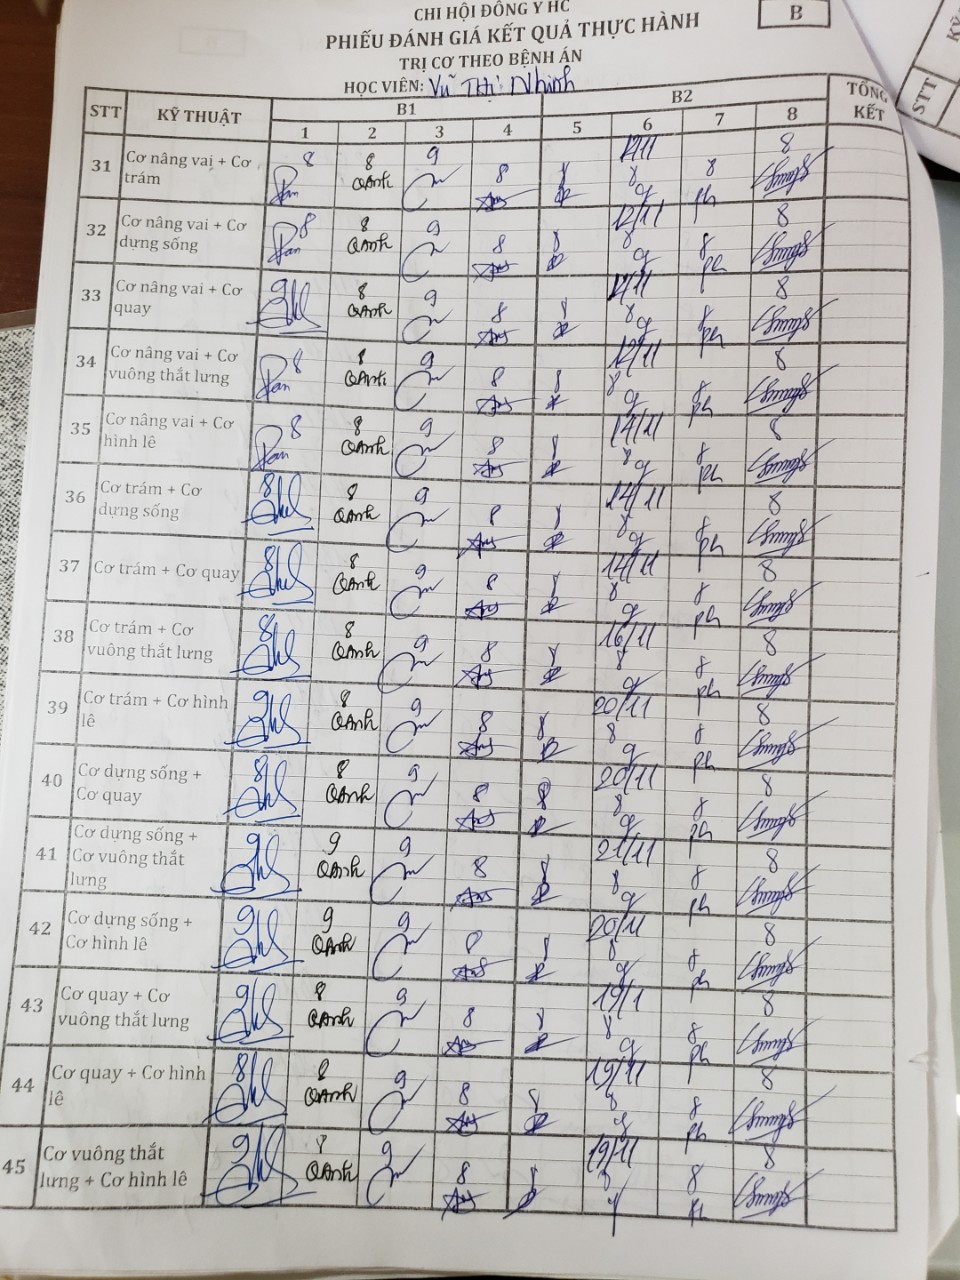 CHI HỘI ĐÔNG Y HC
B
PHIẾU ĐÁNH GIÁ KẾT QUẢ THỰC HÀNH
TRỊ CƠ THEO BỆNH ÁN
HỌC VIÊN: Vũ Thị Nhinh
STT KỸ THUẬT B1 B2 TỔNG KẾT
1 2 3 4 5 6 7 8
31 Cơ nâng vai + Cơ trám 8 8 QAnh 9 8 8 12/11 8 8 ph 8
32 Cơ nâng vai + Cơ dựng sống 8 8 QAnh 9 8 8 12/11 8 8 ph 8
33 Cơ nâng vai + Cơ quay 9 8 QAnh 9 8 8 12/11 8 8 ph 8
34 Cơ nâng vai + Cơ vuông thắt lưng 8 8 QAnh 9 8 8 12/11 8 8 ph 8
35 Cơ nâng vai + Cơ hình lê 8 8 QAnh 9 8 8 14/11 8 8 ph 8
36 Cơ trám + Cơ dựng sống 8 8 QAnh 9 8 8 14/11 8 8 ph 8
37 Cơ trám + Cơ quay 8 8 QAnh 9 8 8 14/11 8 8 ph 8
38 Cơ trám + Cơ vuông thắt lưng 8 8 QAnh 9 8 8 16/11 8 8 ph 8
39 Cơ trám + Cơ hình lê 9 8 QAnh 9 8 8 20/11 8 8 ph 8
40 Cơ dựng sống + Cơ quay 8 8 QAnh 9 8 8 20/11 8 8 ph 8
41 Cơ dựng sống + Cơ vuông thắt lưng 9 9 QAnh 9 8 8 21/11 8 8 ph 8
42 Cơ dựng sống + Cơ hình lê 9 9 QAnh 9 8 8 20/11 8 8 ph 8
43 Cơ quay + Cơ vuông thắt lưng 9 8 QAnh 9 8 8 19/1 8 8 ph 8
44 Cơ quay + Cơ hình lê 8 8 QAnh 9 8 8 19/11 8 8 ph 8
45 Cơ vuông thắt lưng + Cơ hình lê 9 8 QAnh 9 8 8 19/11 8 8 8
STT